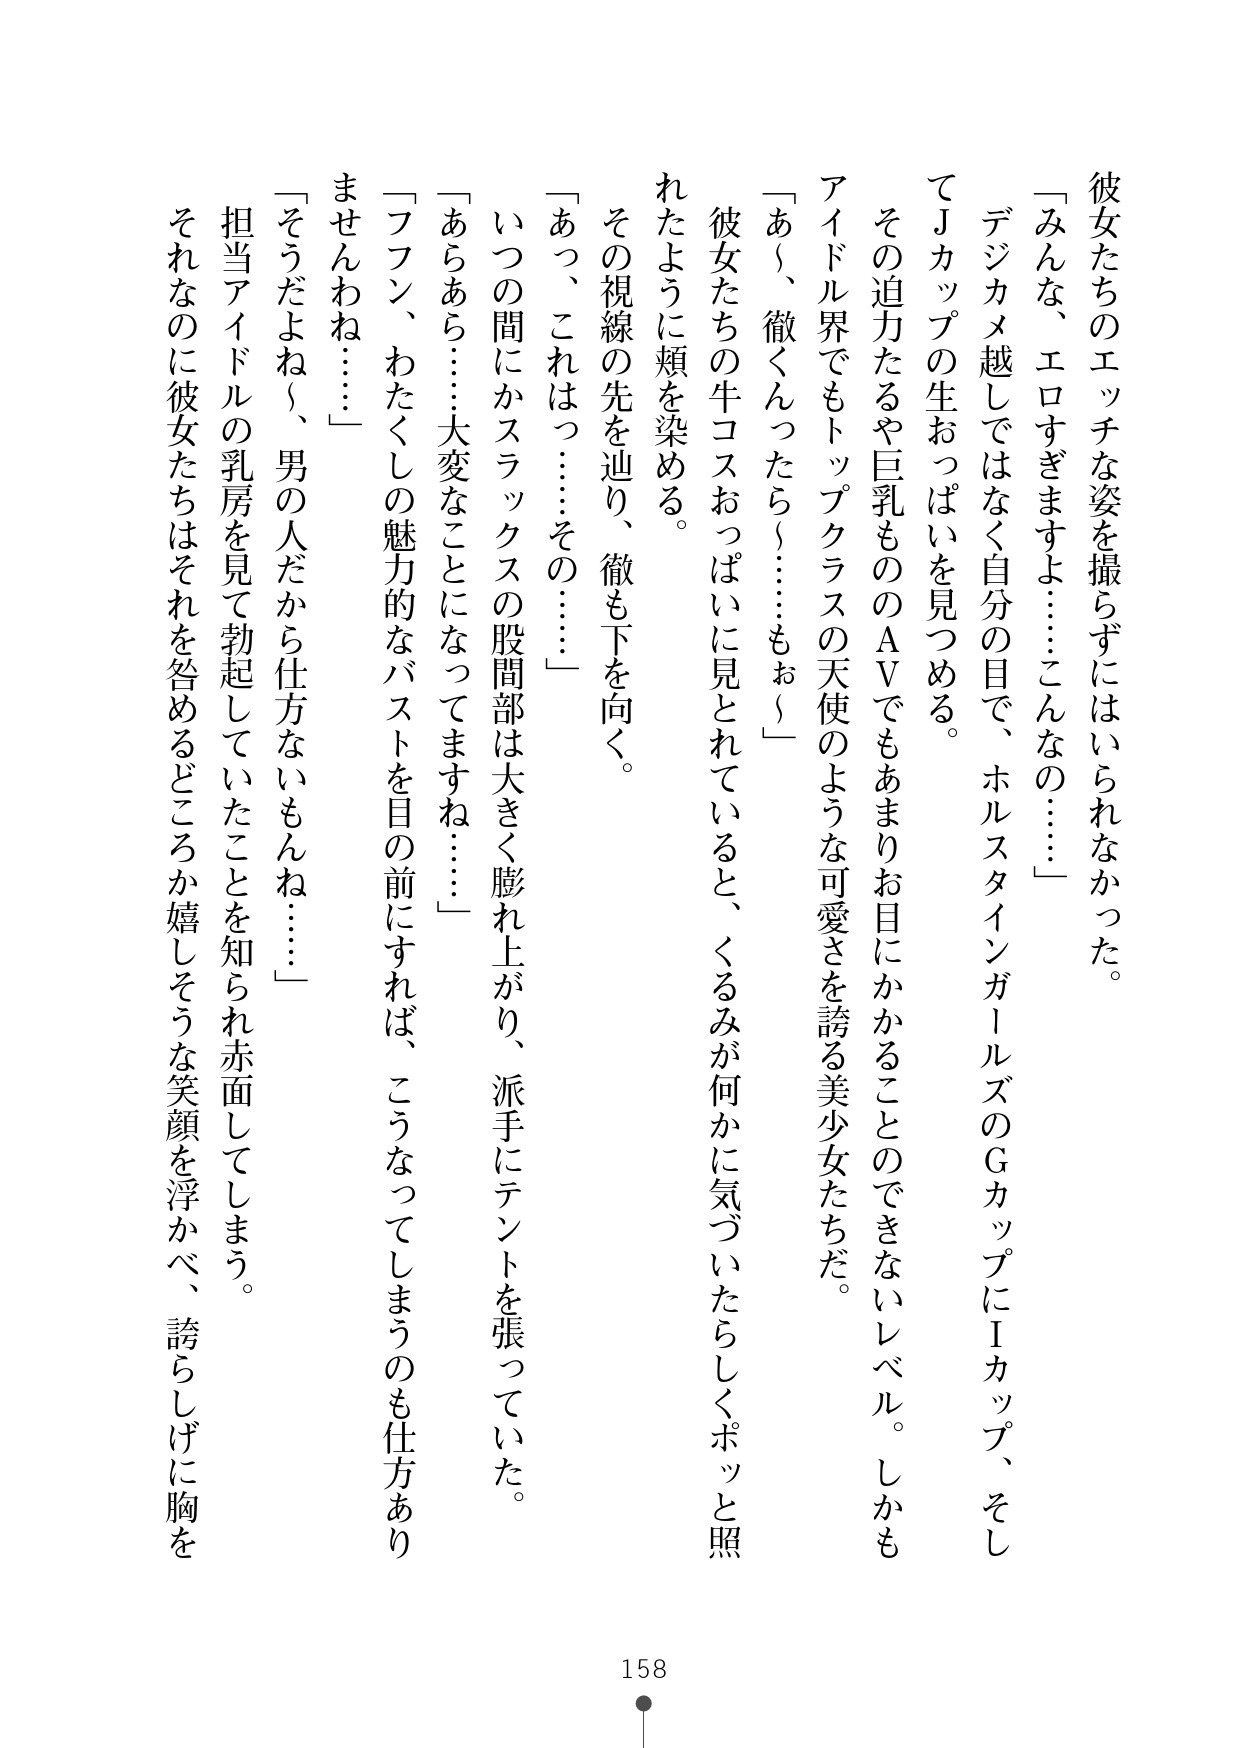 彼女たちのエッチな姿を撮らずにはいられなかった。
「みんな、エロすぎますよ……こんなの……」
　デジカメ越しではなく自分の目で、ホルスタインガールズのGカップにIカップ、そし
てJカップの生おっぱいを見つめる。
　その迫力たるや巨乳もののAVでもあまりお目にかかることのできないレベル。しかも
アイドル界でもトップクラスの天使のような可愛さを誇る美少女たちだ。
「あ～、徹くんったら～……もぉ～」
　彼女たちの牛コスおっぱいに見とれていると、くるみが何かに気づいたらしくポッと照
れたように頬を染める。
　その視線の先を辿り、徹も下を向く。
「あっ、これはっ……その……」
　いつの間にかスラックスの股間部は大きく膨れ上がり、派手にテントを張っていた。
「あらあら……大変なことになってますね……」
「フフン、わたくしの魅力的なバストを目の前にすれば、こうなってしまうのも仕方あり
ませんわね……」
「そうだよね～、男の人だから仕方ないもんね……」
　担当アイドルの乳房を見て勃起していたことを知られ赤面してしまう。
　それなのに彼女たちはそれを咎めるどころか嬉しそうな笑顔を浮かべ、誇らしげに胸を
158